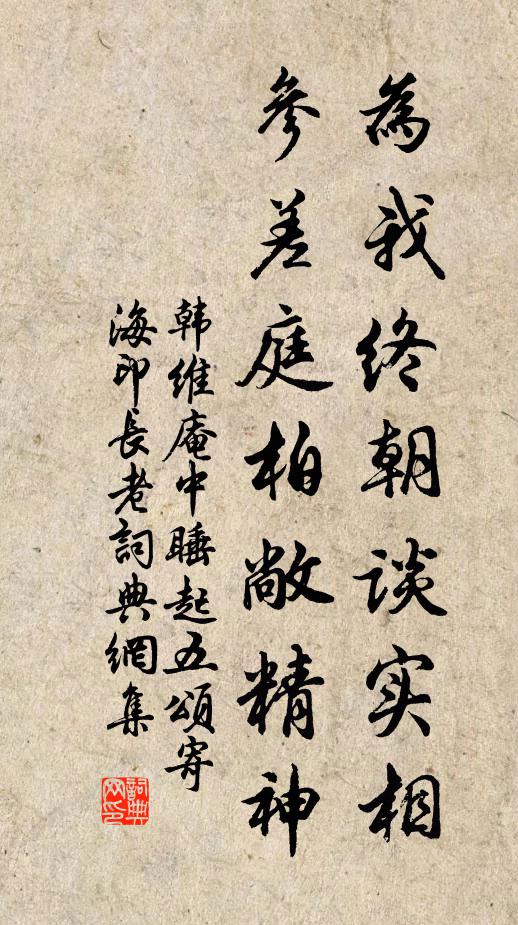 為我终朝談实相
參差庭柏敞精神
韩維庵中睡起五頌寄
海印長老詞典網集
詞典
网印